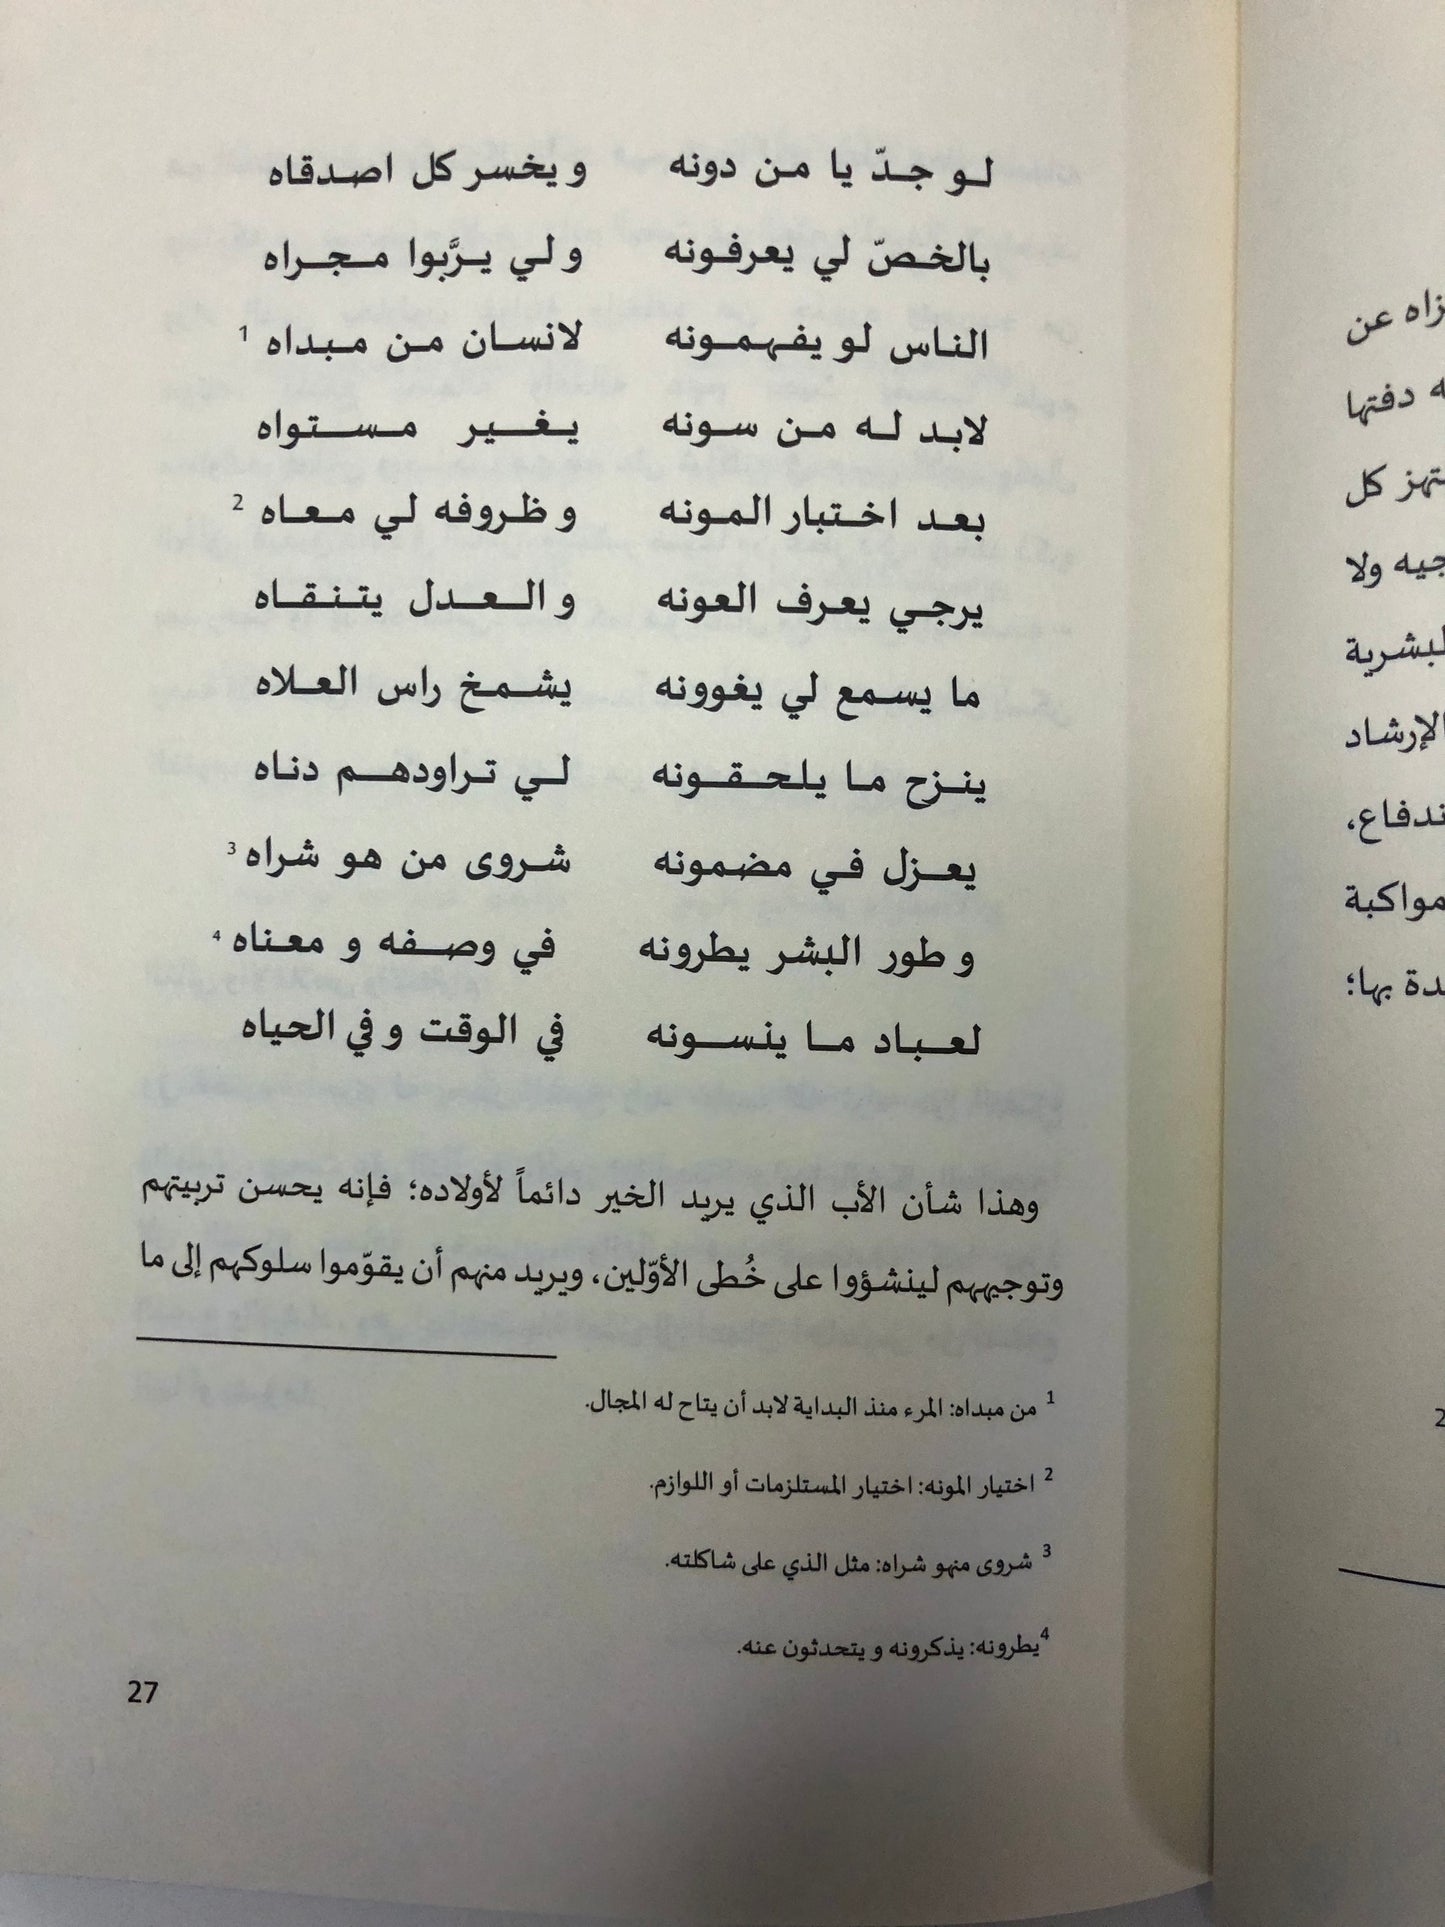 لو جدّ يا من دونه ويخسر كل اصدقاه
بالخصّ لي يعرفونه ولي يربَّوا مجراه
الناس لو يفهمونه لانسان من مبداه 1
لابد له من سونه يغير مستواه
بعد اختبار المونه وظروفه لي معاه 2
يرجي يعرف العونه والعدل يتنقاه
ما يسمع لي يغوونه يشمخ راس العلاه
ينزح ما يلحقونه لي تراودهم دناه
يعزل في مضمونه شروى من هو شراه 3
وطور البشر يطرونه في وصفه و معناه 4
لعباد ما ينسونه في الوقت وفي الحياه
وهذا شأن الأب الذي يريد الخير دائماً لأولاده؛ فإنه يحسن تربيتهم
وتوجيههم لينشؤوا على خُطى الأوّلين، ويريد منهم أن يقوّموا سلوكهم إلى ما
1 من مبداه: المرء منذ البداية لابد أن يتاح له المجال.
2 اختيار المونه: اختيار المستلزمات أو اللوازم.
3 شروى منهو شراه: مثل الذي على شاكلته.
4 يطرونه: يذكرونه و يتحدثون عنه.
27
زاه عن
دفتها
كل
ولا
الإرشاد
بها؛
2